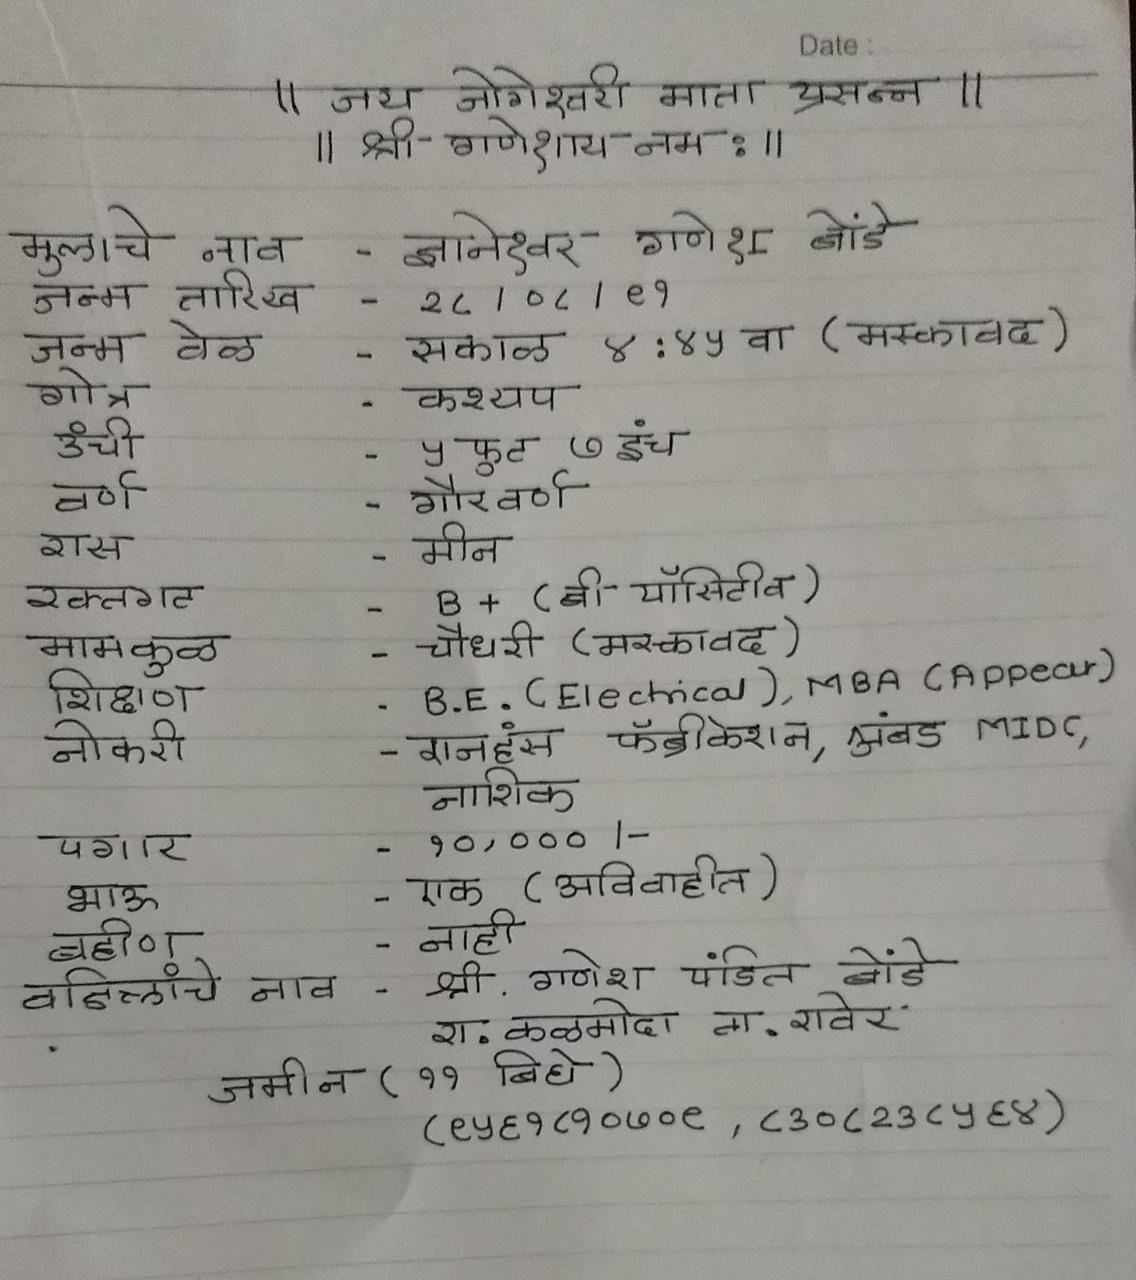 Date :
॥ जय जोगेश्वरी माता प्रसन्न ॥
॥ श्री गणेशाय नमः ॥
मुलाचे नाव - ज्ञानेश्वर गणेश बोंडे
जन्म तारिख - २८/०८/९१
जन्म वेळ - सकाळ ४:४५ वा (मस्कावद)
गोत्र - कश्यप
उंची - ५ फुट ७ इंच
वर्ण - गौरवर्ण
रास - मीन
रक्तगट - B + (बी पॉसिटीव)
मामकुळ - चौधरी (मस्कावद)
शिक्षण - B.E. (Electrical), MBA (Appear)
नोकरी - राजहंस फॅब्रीकेशन, अंबड MIDC,
नाशिक
पगार - १०,००० /-
भाऊ - एक (अविवाहीत)
बहीण - नाही
वडिलांचे नाव - श्री. गणेश पंडित बोंडे
रा. कळमोदा ता. रावेर
जमीन (११ बिघे)
(९५६१८१०७०९, ८३०८२३८५६४)